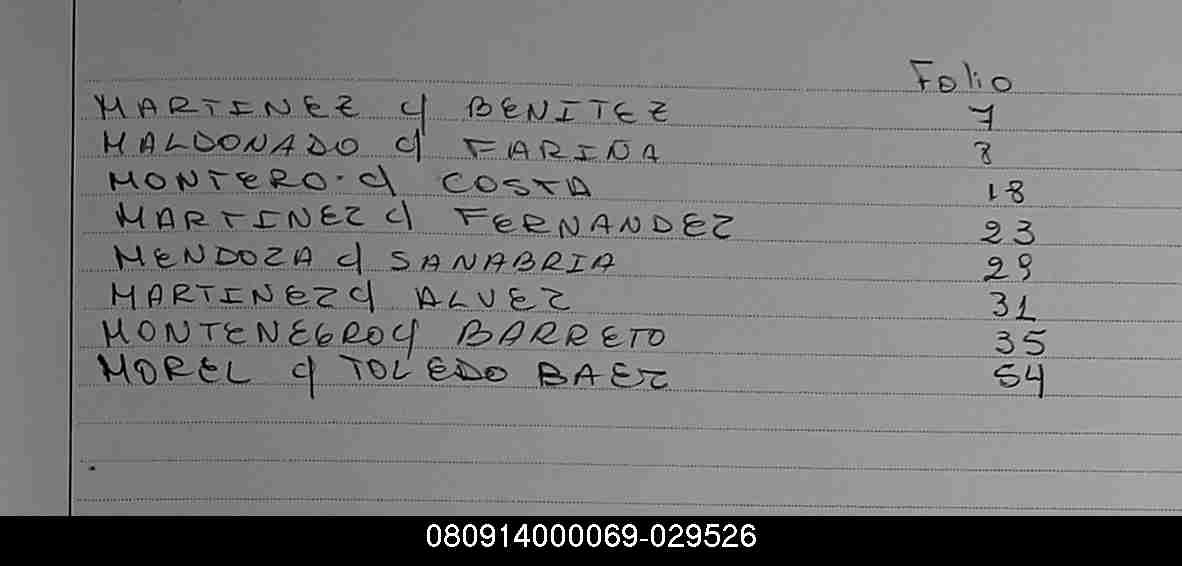 Folio
MARTINEZ c/ BENITEZ 7
MALDONADO c/ FARIÑA 8
MONTERO c/ COSTA 18
MARTINEZ c/ FERNANDEZ 23
MENDOZA c/ SANABRIA 29
MARTINEZ c/ ALVEZ 31
MONTENEGRO c/ BARRETO 35
MOREL c/ TOLEDO BAEZ 54
080914000069-029526